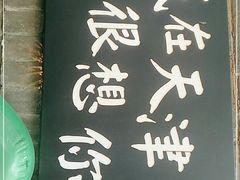 在天津
很想你